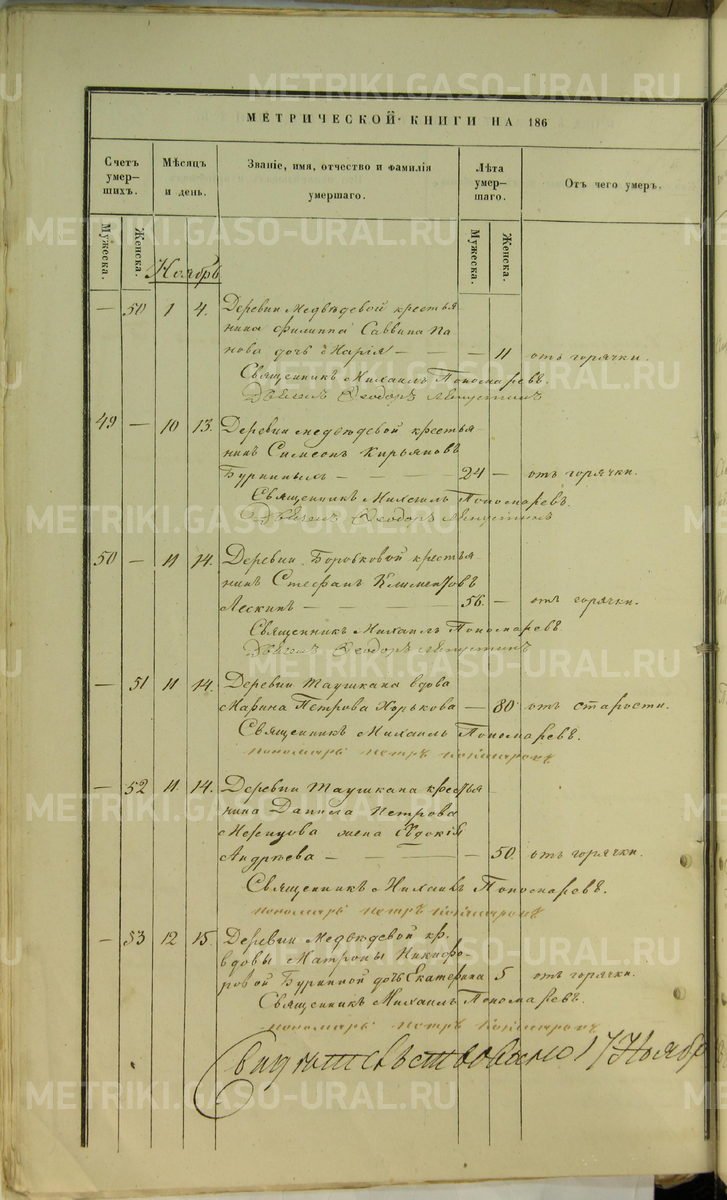 МЕТРИЧЕСКОЙ КНИГИ НА 186
Счетъ умер-шихъ. Мѣсяцъ и день. Званіе, имя, отчество и фамилія умершаго. Лѣта умер-шаго. Отъ чего умеръ.
Мужеска. Женска. Мужеска. Женска.
Ноябрь
— 50 1 4. Деревни Медвѣдевой крестья
нина Филиппа Саввина Па
нова дочь Марья — — — 11 отъ горячки.
Священникъ Михаилъ Пономаревъ.
Ѳеодоръ
49 — 10 13. Деревни Медвѣдевой крестья
нинъ Симеонъ Кирьяновъ
Бурниныхъ — — 24 — отъ горячки.
Священникъ Михаилъ Пономаревъ.
Ѳеодоръ
50 — 11 14. Деревни Боровковой крестья
нинъ Стефанъ Климентовъ
Лескинъ — — — 56. — отъ горячки.
Священникъ Михаилъ Пономаревъ.
Ѳеодоръ
— 51 11 14. Деревни Таушкана вдова
Марина Петрова Хорькова — 80 отъ старости.
Священникъ Михаилъ Пономаревъ.
пономарь Петръ
— 52 11. 14. Деревни Таушкана крестья
нина Данила Петрова
жена Евдокія
Андрѣева — — — 50. отъ горячки.
Священникъ Михаилъ Пономаревъ.
пономарь Петръ
— 53 12 15. Деревни Медвѣдевой кр.
вдовы Матроны Никифо-
ровой Бурниной дочь Екатерина 5 отъ горячки.
Священникъ Михаилъ Пономаревъ.
пономарь Петръ
Свидѣтельствовано 17 Ноябр
METRIKI.GASO-URAL.RU